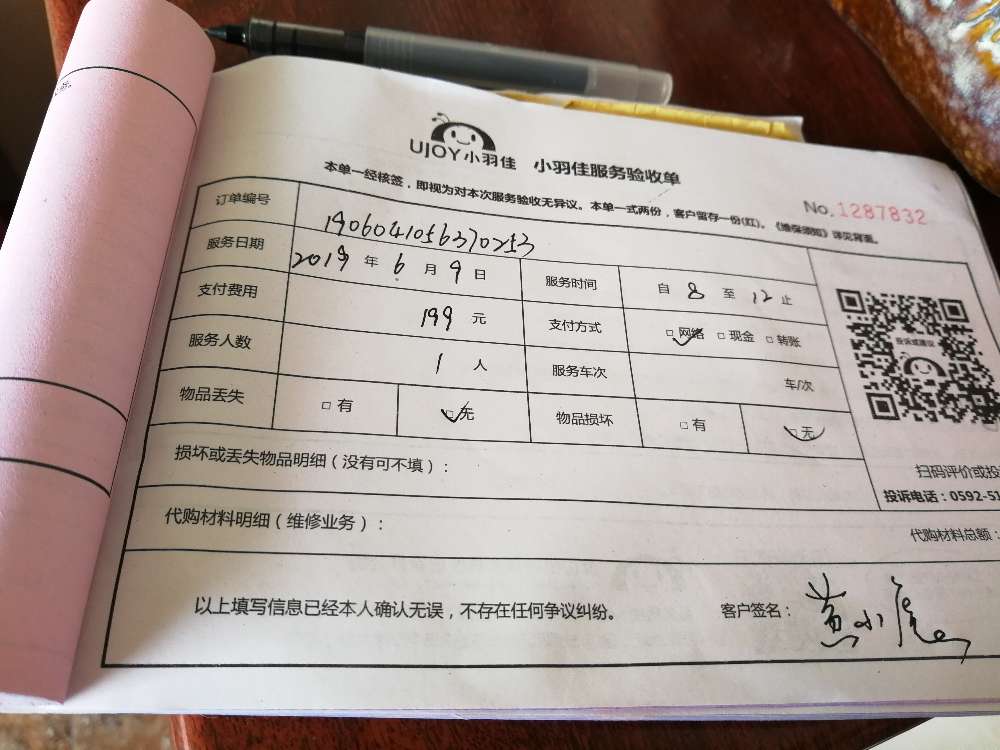 UJOY小羽佳 小羽佳服务验收单
本单一经核签，即视为对本次服务验收无异议。本单一式两份，客户留存一份(红)。《维保须知》详见背面。
No.1287832
订单编号 1906041056370253
服务日期 2019 年 6 月 9 日 服务时间 自 8 至 12 止
支付费用 199 元 支付方式 □网络 □现金 □转账
服务人数 1 人 服务车次 车/次
物品丢失 □有 □无 物品损坏 □有 □无
投诉或建议
扫码评价或投
投诉电话：0592-51
损坏或丢失物品明细（没有可不填）：
代购材料明细（维修业务）： 代购材料总额：
以上填写信息已经本人确认无误，不存在任何争议纠纷。 客户签名： 黄小虎